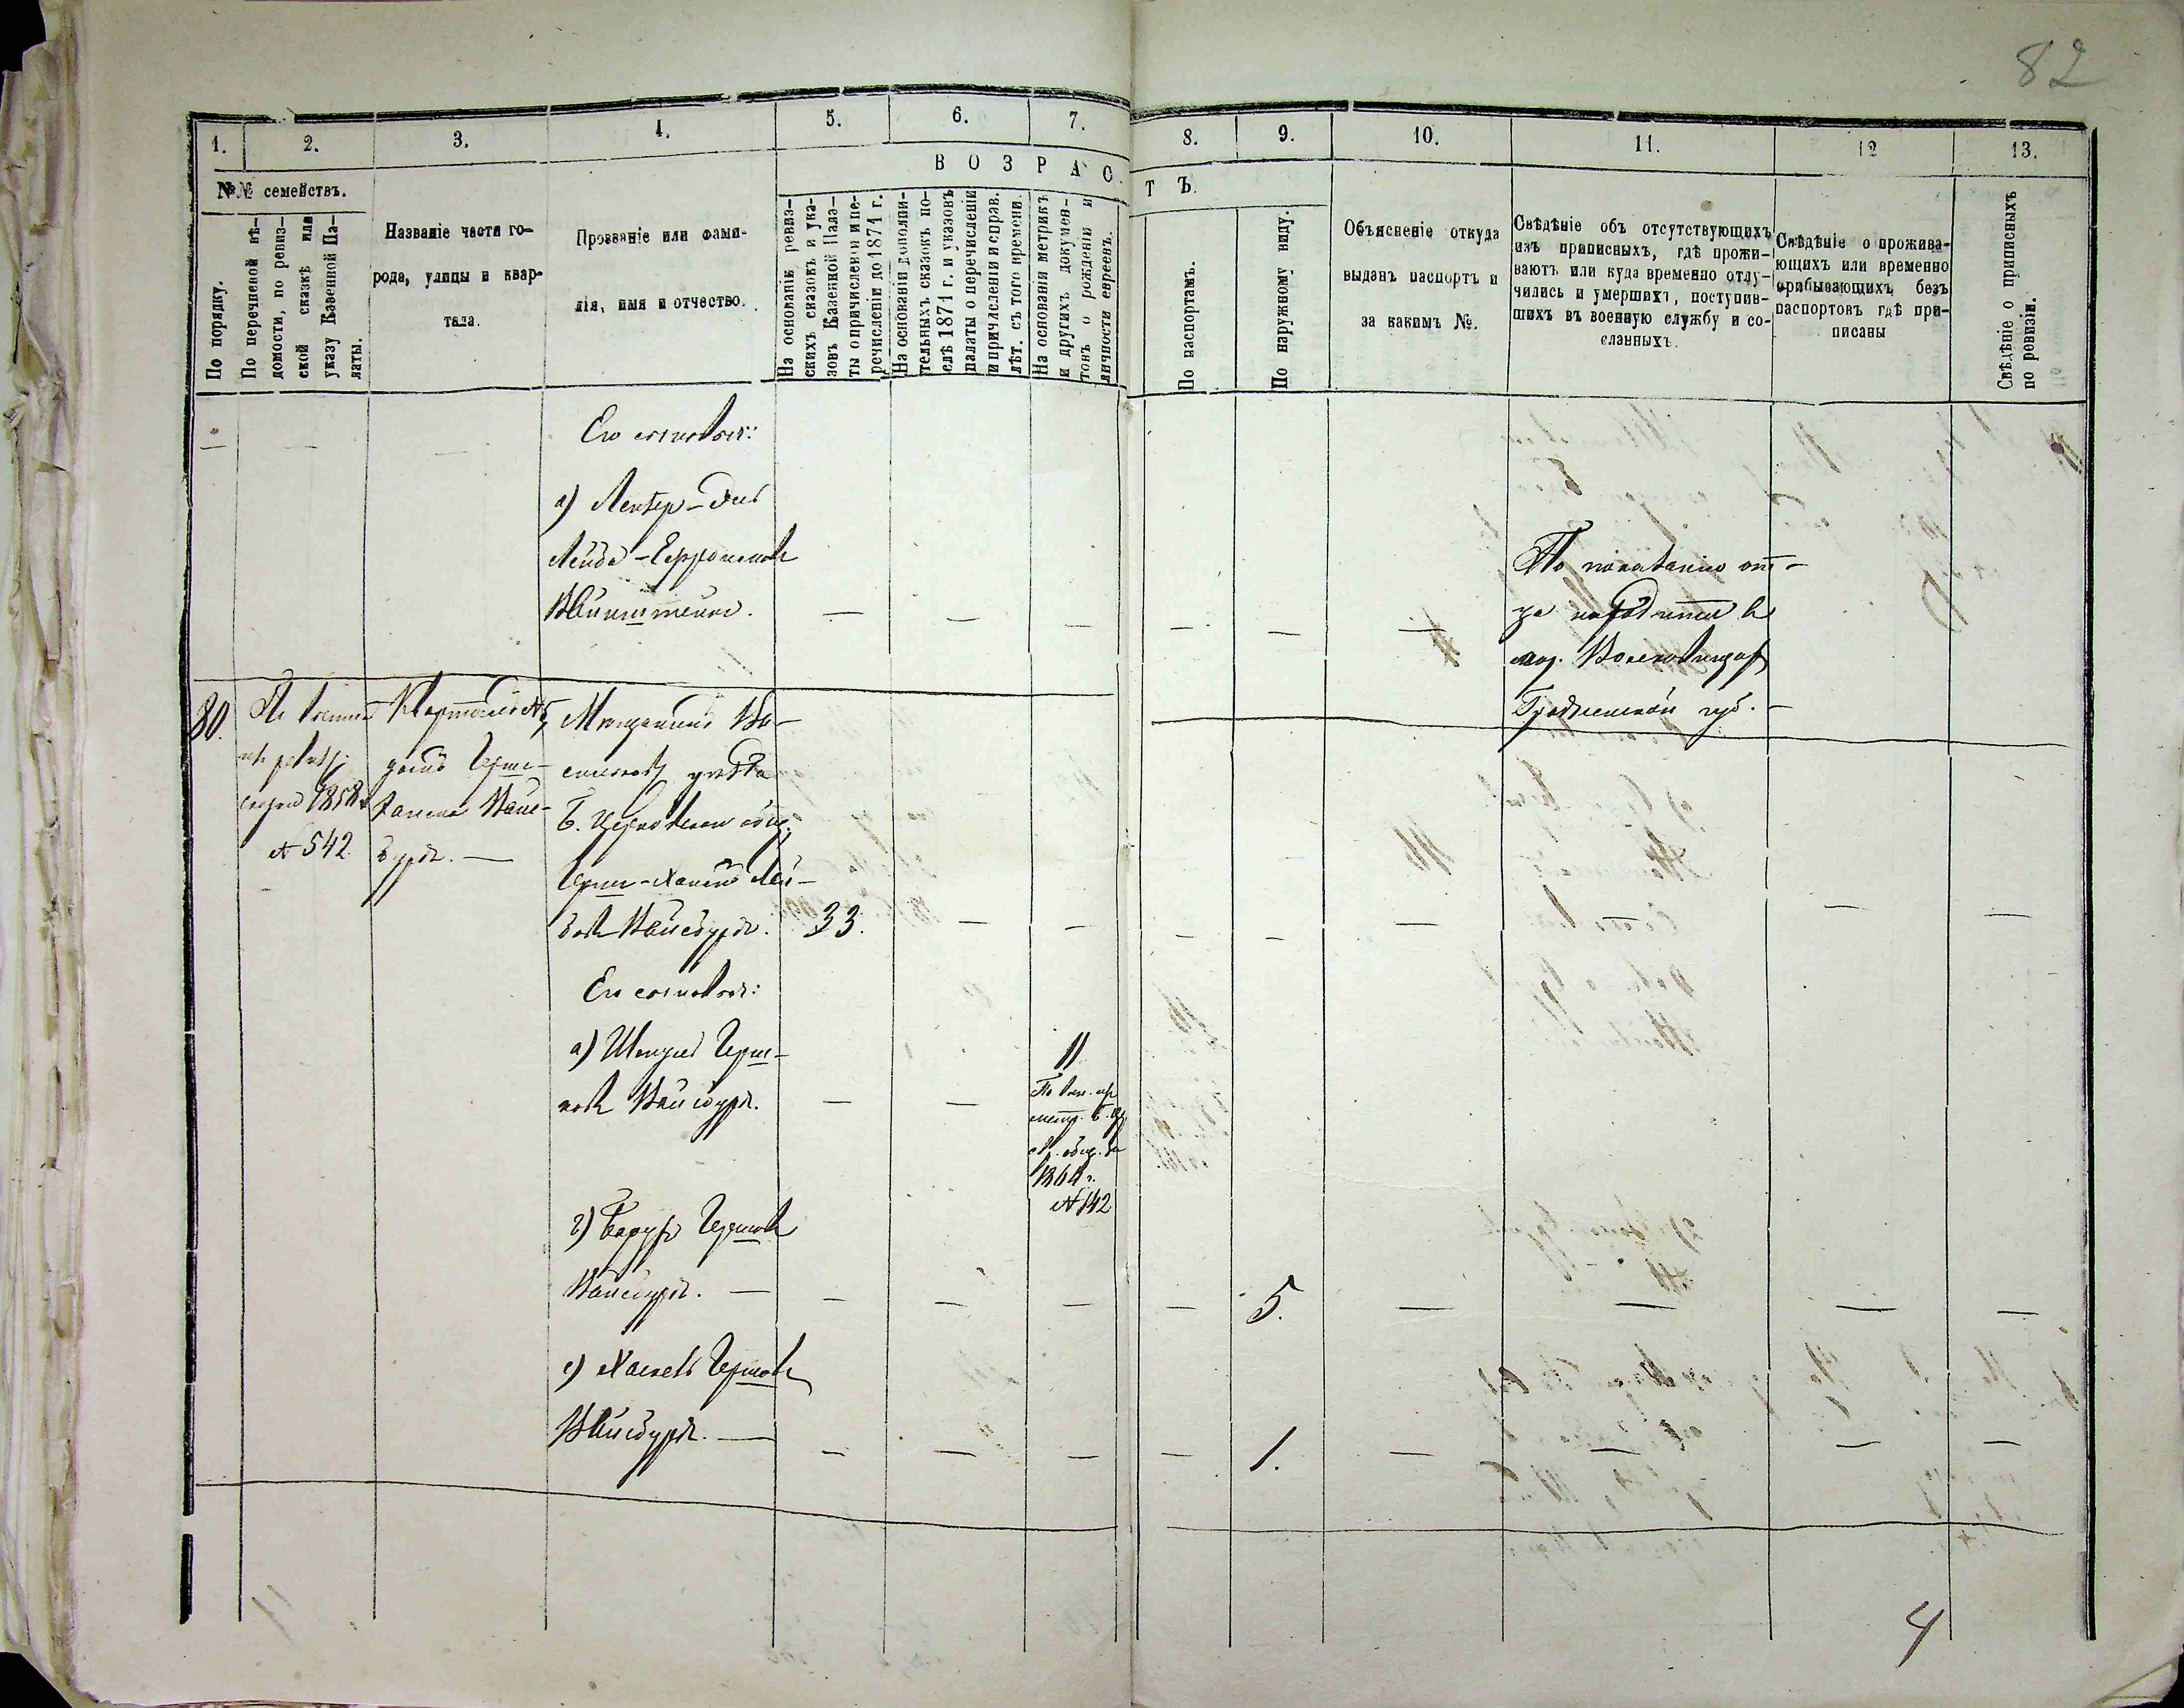 82
1. 2. 3. 4. 5. 6. 7. 8. 9. 10. 11. 12 13.
ВОЗРАСТЪ.
№№ семействъ.
По порядку.
По перечневой вѣ-
домости, по ревиз-
ской сказкѣ или
указу Казенной Па-
латы.
Названіе части го-
рода, улицы и квар-
тала.
Прозваніе или фами-
лія, имя и отчество.
На основаніи ревиз-
скихъ сказокъ и ука-
зовъ Казенной Пала-
ты о причисленіи и пе-
речисленіи до 1871 г.
На основаніи дополни-
тельныхъ сказокъ по-
слѣ 1871 г. и указовъ
палаты о перечисленіи
и причисленіи и справ.
лѣт. съ того времени.
На основаніи метрикъ
и другихъ докумен-
товъ о рожденіи и
личности евреевъ.
По паспортамъ.
По наружному виду.
Объясненіе откуда
выданъ паспортъ и
за какимъ №.
Свѣдѣніе объ отсутствующихъ
изъ приписныхъ, гдѣ прожи-
ваютъ или куда временно отлу-
чились и умершихъ, поступив-
шихъ въ военную службу и со-
сланныхъ.
Свѣдѣніе о прожива-
ющихъ или временно
прибывающихъ безъ
паспортовъ гдѣ при-
писаны
Свѣдѣніе о приписныхъ
по ревизіи.
Его сыновья:
а)
Вайнштейнъ.
По показанію от-
ца находится въ
Гродненской губ.
80.
сказкѣ 1858 г.
№ 542
Кварталъ № 5,
домъ Герш-
Хаима Вайс-
бурда.
Мѣщанинъ Ва-
сильков. уѣзда
Б. Церковскаго общ.
Герш-Хаимъ Лей-
бовъ Вайсбурдъ. 33.
Его сыновья:
а) Шмуль Герш-
ковъ Вайсбурдъ.
11
метр. Б. Ц.
евр. общ. за
1864 г.
№ 142
б) Барухъ Гершковъ
Вайсбурдъ. 5.
в) Хаскель Гершковъ
Вайсбурдъ. 1.
4